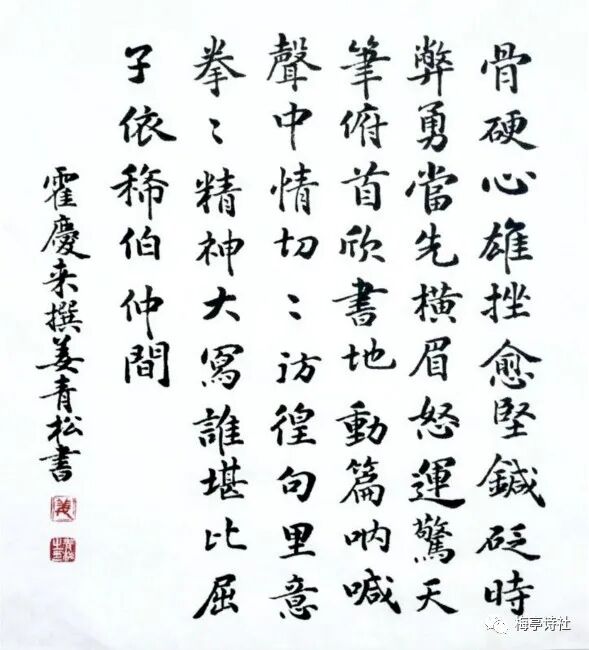 骨硬心雄挫愈堅鍼砭時
弊勇當先橫眉怒運驚天
筆俯首欣書地動篇呐喊
聲中情切〻訪徨句里意
拳〻精神大寫誰堪比屈
子依稀伯仲間
霍慶来撰姜青松書
姜
梅亭诗社